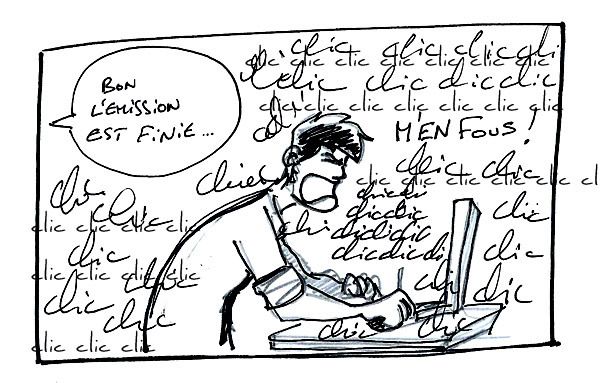 BON
L'EMISSION
EST FINIE...
clic clic clic clic
clic clic clic clic clic clic clic
clic clic clic clic
clic clic clic clic clic clic clic
M'EN FOUS!
clic clic
clic clic clic clic clic c
clic
clic clic
clic clic clic clic
clic
clic clic
clic clic clic clic
clic clic
clic
clic clic
clic clic clic